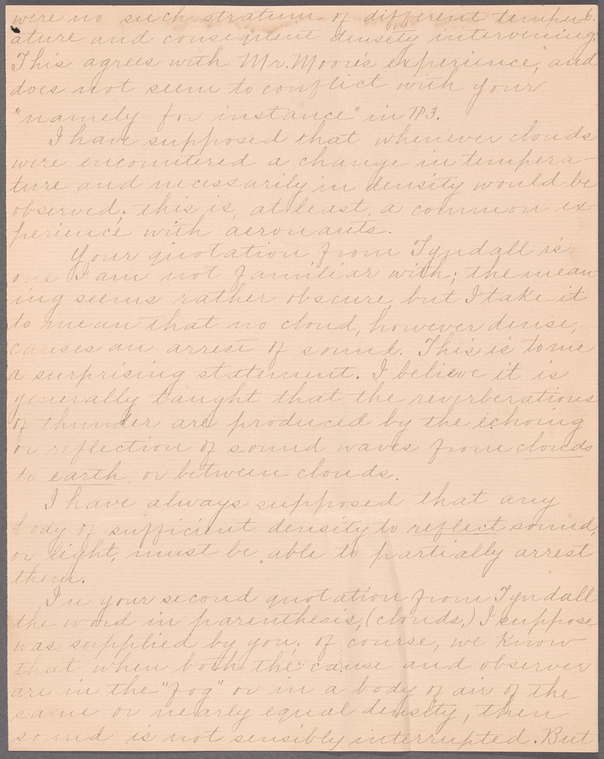 were no such stratum of different temper-
ature and consequent density intervening.
This agrees with Mr. Moore's experience, and
does not seem to conflict with your
"namely for instance" in P3.
I have supposed that whenever clouds
were encountered a change in tempera-
ture and necessarily in density would be
observed; this is, at least, a common ex-
perience with aeronauts.
Your quotation from Tyndall is
one I am not familiar with; the mean
ing seems rather obscure, but I take it
to mean that no cloud, however dense,
causes an arrest of sound. This is to me
a surprising statement. I believe it is
generally taught that the reverberations
of thunder are produced by the echoing
or reflection of sound waves from clouds
to earth, or between clouds.
I have always supposed that any
body of sufficient density to reflect sound,
or light, must be able to partially arrest
them.
In your second quotation from Tyndall
the word in parenthesis, (clouds,) I suppose
was supplied by you; of course, we know
that, when both the cause and observer
are in the "fog" or in a body of air of the
same or nearly equal density, then
sound is not sensibly interrupted. But